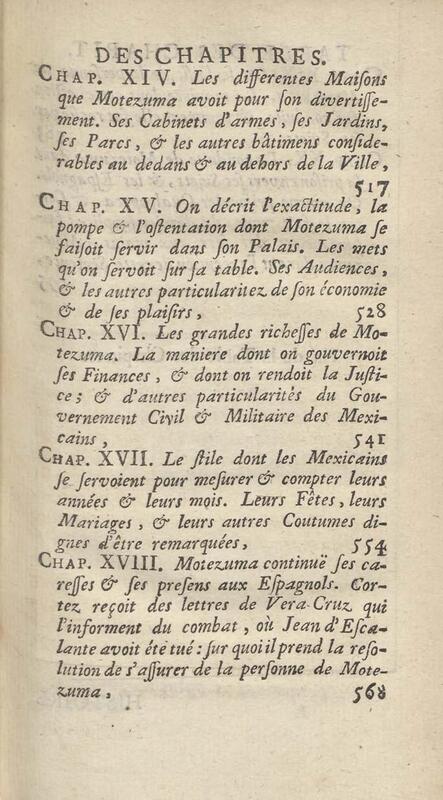 DES CHAPITRES.
CHAP. XIV. Les differentes Maiſons
que Motezuma avoit pour ſon divertiſſe-
ment. Ses Cabinets d'armes, ſes Jardins,
ſes Parcs, & les autres bâtimens conſide-
rables au dedans & au dehors de la Ville,
517
CHAP. XV. On décrit l'exactitude, la
pompe & l'oſtentation dont Motezuma ſe
faiſoit ſervir dans ſon Palais. Les mets
qu'on ſervoit ſur ſa table. Ses Audiences,
& les autres particularitez de ſon économie
& de ſes plaiſirs, 528
CHAP. XVI. Les grandes richeſſes de Mo-
tezuma. La maniere dont on gouvernoit
ſes Finances, & dont on rendoit la Juſti-
ce; & d'autres particularités du Gou-
vernement Civil & Militaire des Mexi-
cains, 541
CHAP. XVII. Le ſtile dont les Mexicains
ſe ſervoient pour meſurer & compter leurs
années & leurs mois. Leurs Fêtes, leurs
Mariages, & leurs autres Coutumes di-
gnes d'être remarquées, 554
CHAP. XVIII. Motezuma continuë ſes ca-
reſſes & ſes preſens aux Eſpagnols. Cor-
tez reçoit des lettres de Vera-Cruz qui
l'informent du combat, où Jean d'Eſca-
lante avoit été tué: ſur quoi il prend la reſo-
lution de s'aſſurer de la perſonne de Mote-
zuma, 568